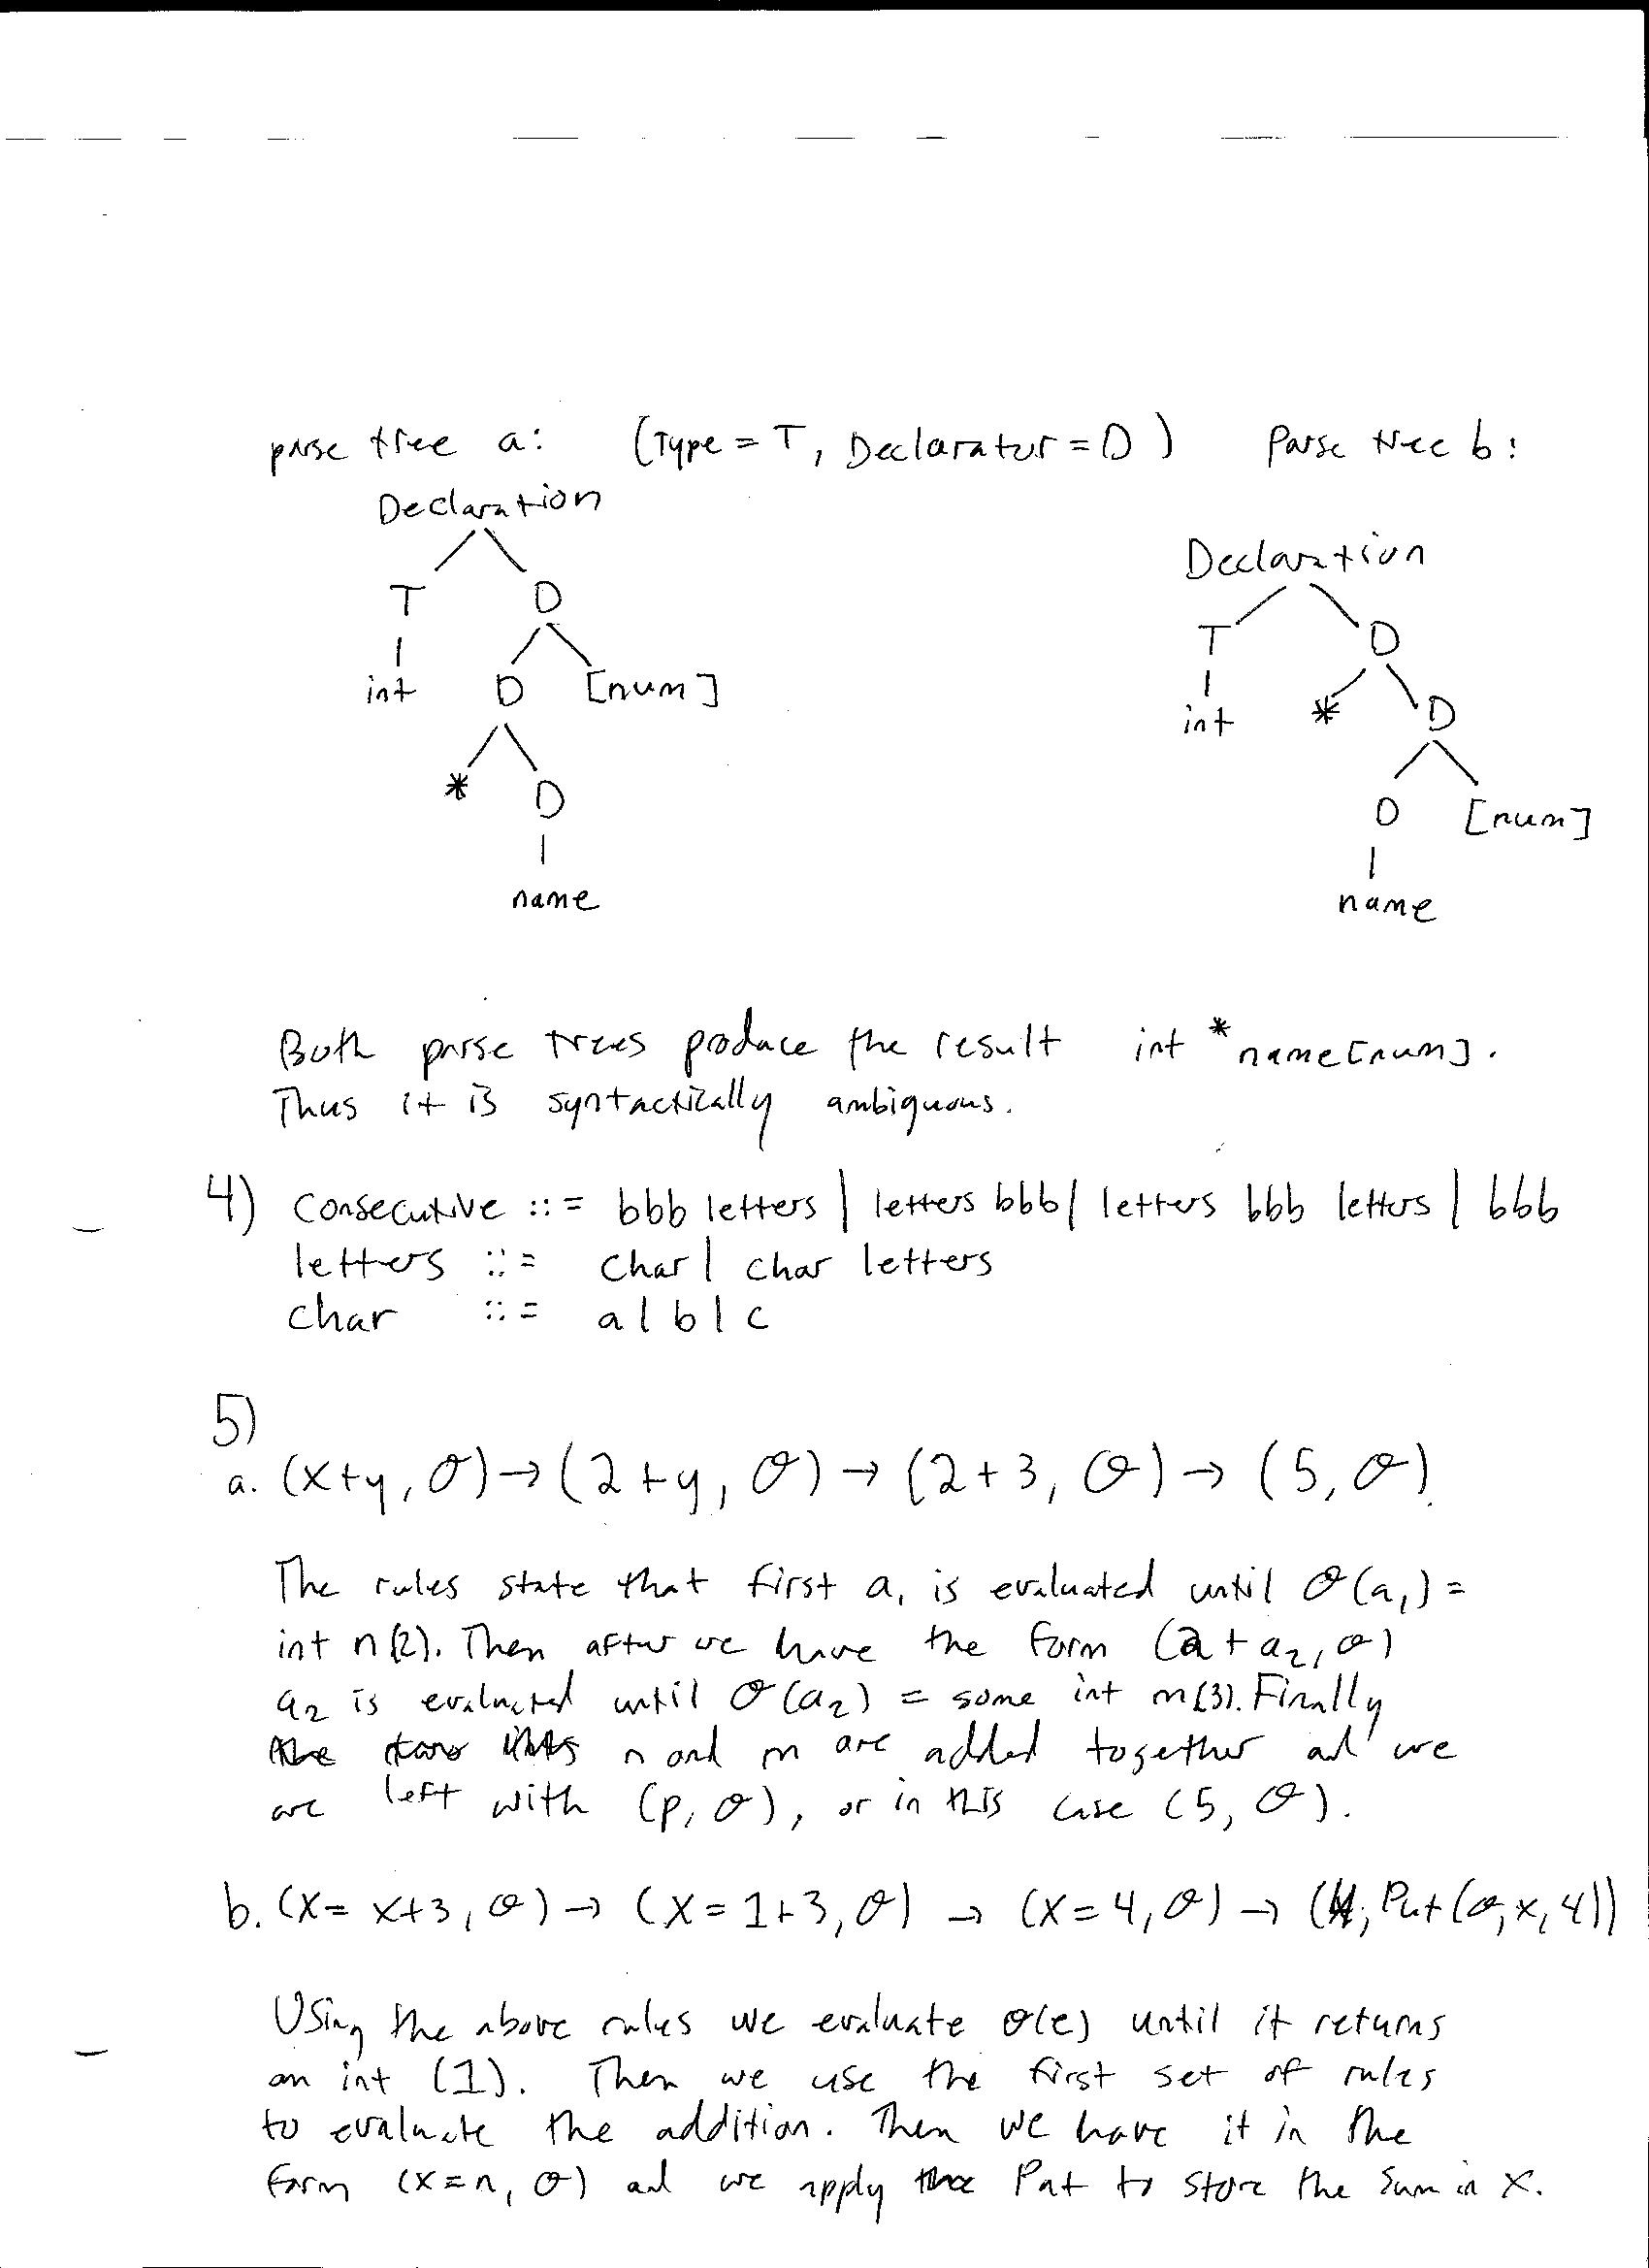 parse tree a: (Type = T, Declarator = D) Parse tree b:
Declaration
Declaration
T D
T D
int D [num]
int * D
* D
D [num]
name
name
Both parse trees produce the result int *name[num].
Thus it is syntactically ambiguous.
4) Consecutive ::= bbb letters | letters bbb | letters bbb letters | bbb
letters ::= char | char letters
char ::= a | b | c
5)
a. (x+y, σ) → (2+y, σ) → (2+3, σ) → (5, σ)
The rules state that first a₁ is evaluated until σ(a₁) =
int n(2). Then after we have the form (2 + a₂, σ)
a₂ is evaluated until σ(a₂) = some int m(3). Finally
n and m are added together and we
are left with (p, σ), or in this case (5, σ).
b. (x = x+3, σ) → (x = 1+3, σ) → (x = 4, σ) → (Put(σ, x, 4))
Using the above rules we evaluate σ(e) until it returns
an int (1). Then we use the first set of rules
to evaluate the addition. Then we have it in the
form (x = n, σ) and we apply Put to store the sum in x.